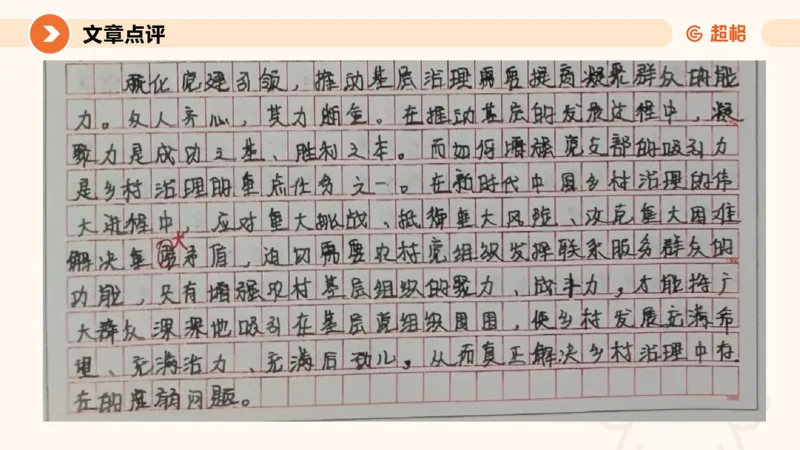 文章点评
超格
强化党建引领，推动基层治理需要提高凝聚群众的能
力。众人齐心，其力断金。在推动基层的发展过程中，凝
聚力是成功之基、胜利之本。而如何增强党支部的吸引力
是乡村治理的重点任务之一。在新时代中国乡村治理的伟
大进程中，应对重大挑战、抵御重大风险、攻克重大困难
解决重大矛盾，迫切需要农村党组织发挥联系服务群众的
功能，只有增强农村基层组织的聚力、战斗力，才能将广
大群众深深地吸引在基层党组织周围，使乡村发展充满希
望、充满活力、充满后劲儿，从而真正解决乡村治理中存
在的虚弱问题。